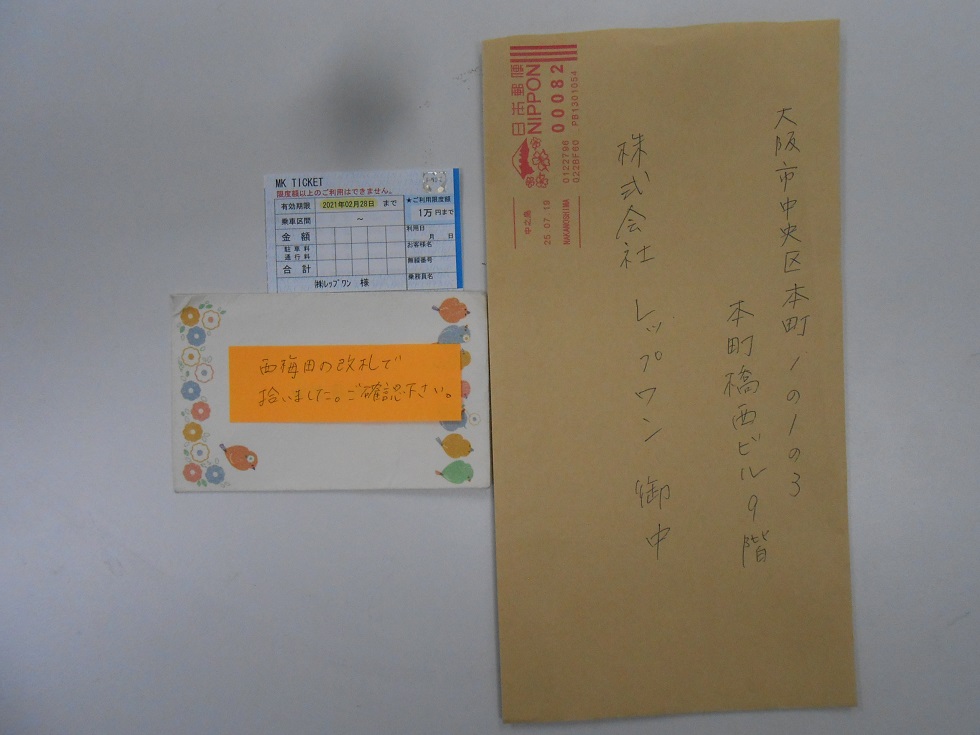 MK TICKET
限度額以上のご利用はできません。
有効期限 2021年02月28日 まで
乗車区間 ～
金額
駐車料
通行料
合計
㈱レップワン 様
★ご利用限度額
1万円まで
利用日
月 日
お客様名
無線番号
乗務員名
西梅田の改札で
拾いました。ご確認下さい。
日本郵便
NIPPON
00082
PB1301054
0122796
0226F60
中之島
25.07.19
NAKANOSHIMA
大阪市中央区本町1の1の3
本町橋西ビル9階
株式会社 レップワン 御中